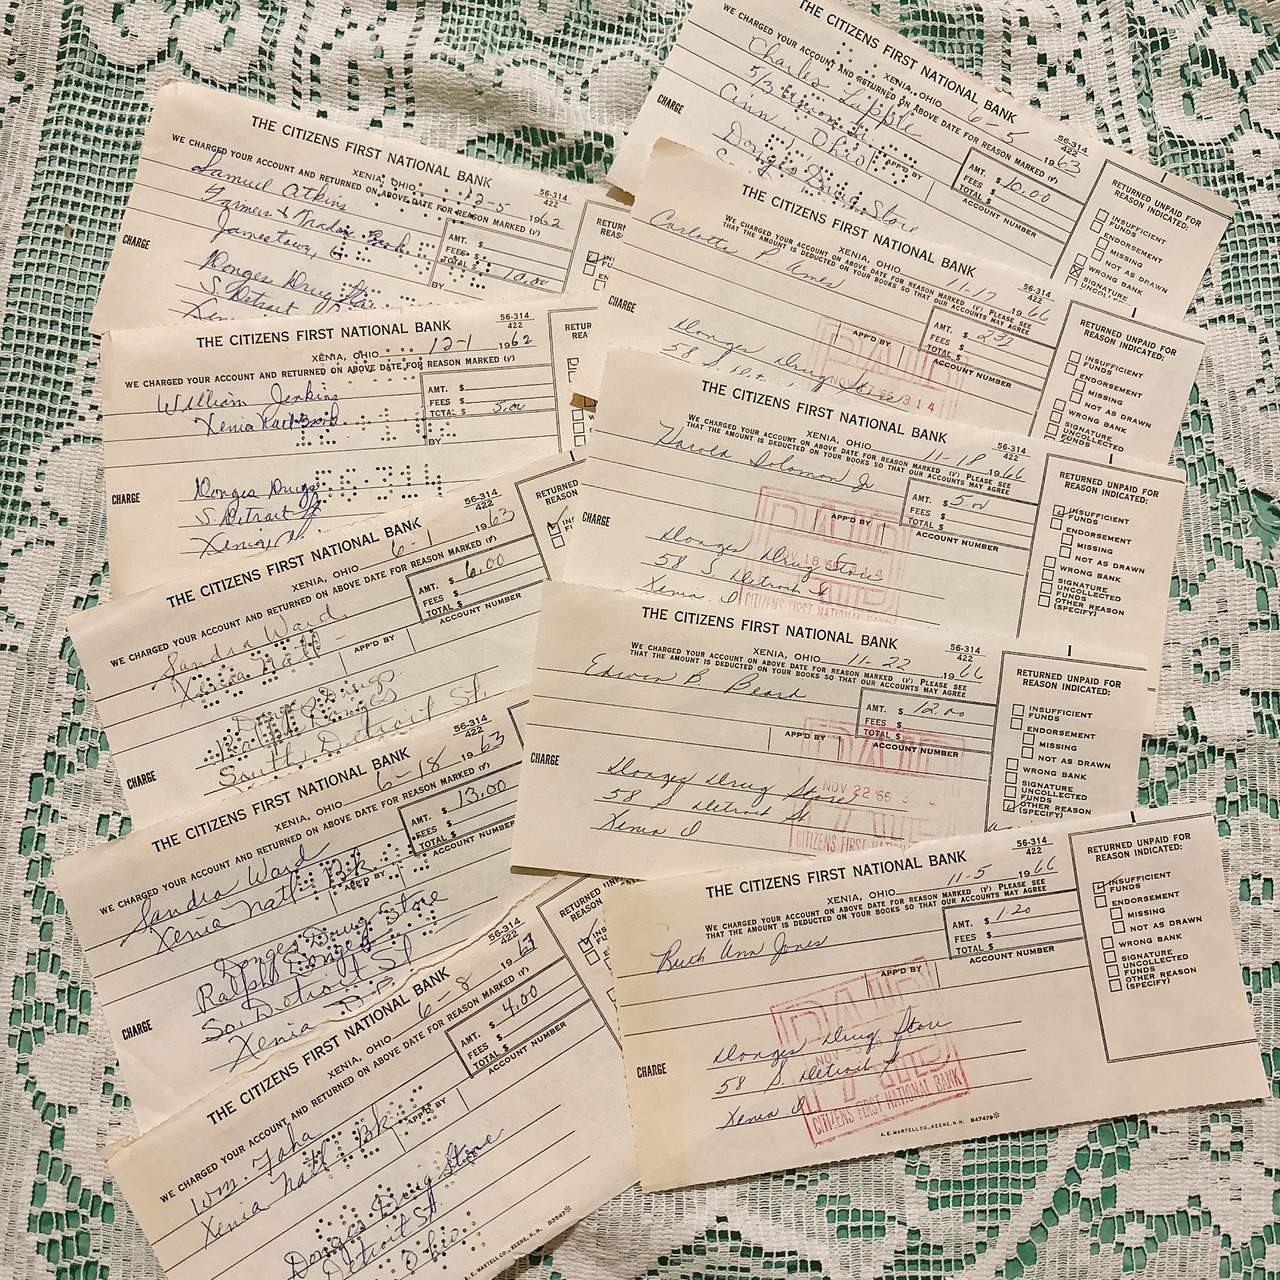 THE CITIZENS FIRST NATIONAL BANK
XENIA, OHIO 12-5 1962
56-314
422
WE CHARGED YOUR ACCOUNT AND RETURNED ON ABOVE DATE FOR REASON MARKED (√)
Samuel Atkins
Jamestown, O
AMT. $
FEES $
TOTAL $ 10.00
BY
CHARGE
Donges Drug Store
S. Detroit St
Xen
RETURNED
REAS
THE CITIZENS FIRST NATIONAL BANK
XENIA, OHIO 12-1 1962
56-314
422
WE CHARGED YOUR ACCOUNT AND RETURNED ON ABOVE DATE FOR REASON MARKED (√)
William Jenkins
Xenia Natl Bank
AMT. $
FEES $
TOTAL $ 5.00
BY
CHARGE
Donges Drugs
S. Detroit St
Xenia, O.
RETUR
REA
THE CITIZENS FIRST NATIONAL BANK
XENIA, OHIO 6-1 1963
56-314
422
WE CHARGED YOUR ACCOUNT AND RETURNED ON ABOVE DATE FOR REASON MARKED (√)
Sandra Ward
Xenia Natl
AMT. $ 6.00
FEES $
TOTAL $
ACCOUNT NUMBER
APP'D BY
CHARGE
South Detroit St.
RETURNED
REASON
THE CITIZENS FIRST NATIONAL BANK
XENIA, OHIO 6-18 1963
56-314
422
WE CHARGED YOUR ACCOUNT AND RETURNED ON ABOVE DATE FOR REASON MARKED (√)
Sandra Ward
Xenia Natl Bk
AMT. $ 13.00
FEES $
TOTAL $
ACCOUNT NUMBER
APP'D BY
CHARGE
Donges Drug Store
Ralph Donges
So. Detroit St
Xenia
THE CITIZENS FIRST NATIONAL BANK
XENIA, OHIO 6-8 1963
56-314
422
WE CHARGED YOUR ACCOUNT AND RETURNED ON ABOVE DATE FOR REASON MARKED (√)
Wm. Faha
Xenia Natl Bk
AMT. $ 4.00
FEES $
TOTAL $
ACCOUNT NUMBER
APP'D BY
Donges Drug Store
Detroit St
Ohio
A. E. MARTELL CO., KEENE, N.H.
RETURNED
REASON
THE CITIZENS FIRST NATIONAL BANK
XENIA, OHIO 6-5 1963
56-314
422
WE CHARGED YOUR ACCOUNT AND RETURNED ON ABOVE DATE FOR REASON MARKED (√)
Charles Supple
5/3 Union
Cinn. Ohio
AMT. $ 10.00
FEES $
TOTAL $
ACCOUNT NUMBER
APP'D BY
CHARGE
Donges Drug Store
RETURNED UNPAID FOR
REASON INDICATED:
INSUFFICIENT
FUNDS
ENDORSEMENT
MISSING
NOT AS DRAWN
WRONG BANK
SIGNATURE
UNCOLL
THE CITIZENS FIRST NATIONAL BANK
XENIA, OHIO 11-17 1966
56-314
422
WE CHARGED YOUR ACCOUNT AND RETURNED ON ABOVE DATE FOR REASON MARKED (√) PLEASE SEE
THAT THE AMOUNT IS DEDUCTED ON YOUR BOOKS SO THAT OUR ACCOUNTS MAY AGREE
Carlotta P Ames
AMT. $
FEES $
TOTAL $
ACCOUNT NUMBER
APP'D BY
CHARGE
Donges Drug Store
58 S. Det
PAID
RETURNED UNPAID FOR
REASON INDICATED:
INSUFFICIENT
FUNDS
ENDORSEMENT
MISSING
NOT AS DRAWN
WRONG BANK
SIGNATURE
UNCOLLECTED
FUNDS
THE CITIZENS FIRST NATIONAL BANK
XENIA, OHIO 11-18 1966
56-314
422
WE CHARGED YOUR ACCOUNT AND RETURNED ON ABOVE DATE FOR REASON MARKED (√) PLEASE SEE
THAT THE AMOUNT IS DEDUCTED ON YOUR BOOKS SO THAT OUR ACCOUNTS MAY AGREE
Harold Solomon Jr
AMT. $ 5.00
FEES $
TOTAL $
ACCOUNT NUMBER
APP'D BY
CHARGE
Donges Drug Store
58 S Detroit St
Xenia O
PAID
CITIZENS FIRST NATIONAL BANK
RETURNED UNPAID FOR
REASON INDICATED:
INSUFFICIENT
FUNDS
ENDORSEMENT
MISSING
NOT AS DRAWN
WRONG BANK
SIGNATURE
UNCOLLECTED
FUNDS
OTHER REASON
(SPECIFY)
THE CITIZENS FIRST NATIONAL BANK
XENIA, OHIO 11-22 1966
56-314
422
WE CHARGED YOUR ACCOUNT AND RETURNED ON ABOVE DATE FOR REASON MARKED (√) PLEASE SEE
THAT THE AMOUNT IS DEDUCTED ON YOUR BOOKS SO THAT OUR ACCOUNTS MAY AGREE
Edwin B Beard
AMT. $ 12.00
FEES $
TOTAL $
ACCOUNT NUMBER
APP'D BY
CHARGE
Donges Drug Store
58 S Detroit St.
Xenia O
PAID
NOV 22 '66
CITIZENS FIRST NATIONAL
RETURNED UNPAID FOR
REASON INDICATED:
INSUFFICIENT
FUNDS
ENDORSEMENT
MISSING
NOT AS DRAWN
WRONG BANK
SIGNATURE
UNCOLLECTED
FUNDS
OTHER REASON
(SPECIFY)
THE CITIZENS FIRST NATIONAL BANK
XENIA, OHIO 11-5 1966
56-314
422
WE CHARGED YOUR ACCOUNT AND RETURNED ON ABOVE DATE FOR REASON MARKED (√) PLEASE SEE
THAT THE AMOUNT IS DEDUCTED ON YOUR BOOKS SO THAT OUR ACCOUNTS MAY AGREE
Ruth Ann Jones
AMT. $ 1.20
FEES $
TOTAL $
ACCOUNT NUMBER
APP'D BY
CHARGE
Donges Drug Store
58 S Detroit St
Xenia O
PAID
NOV
CITIZENS FIRST NATIONAL BANK
A. E. MARTELL CO., KEENE, N. H. B47479
RETURNED UNPAID FOR
REASON INDICATED:
INSUFFICIENT
FUNDS
ENDORSEMENT
MISSING
NOT AS DRAWN
WRONG BANK
SIGNATURE
UNCOLLECTED
FUNDS
OTHER REASON
(SPECIFY)